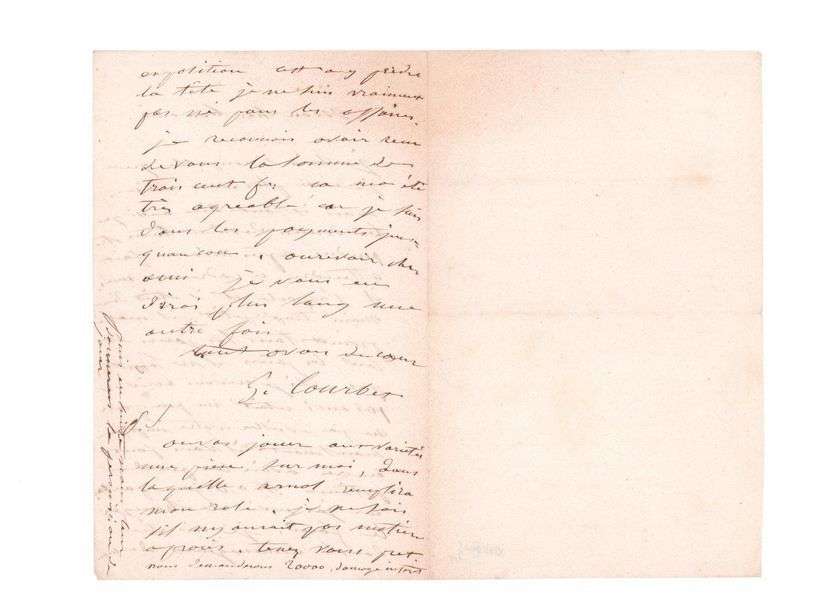 exposition est a y perdre
la tête je ne suis vraiment
pas né pour les affaires.
je reconnois avoir recu
de vous la somme de
trois cent fr. ca ma été
très agreable car je suis
dans les payements jusqu
quau cou. aurevoir cher
ami je vous en
dirai plus long une
autre fois
tout avous de cœur
G. Courbet
on vas jouer aux varietés
une piece sur moi, dans
laquelle arnal remplira
mon role. je ne sais
sil ny aurait pas matière
a procès, tenez vous pret.
nous demanderons 20000, domage interet
donnerons la permission de
jouer